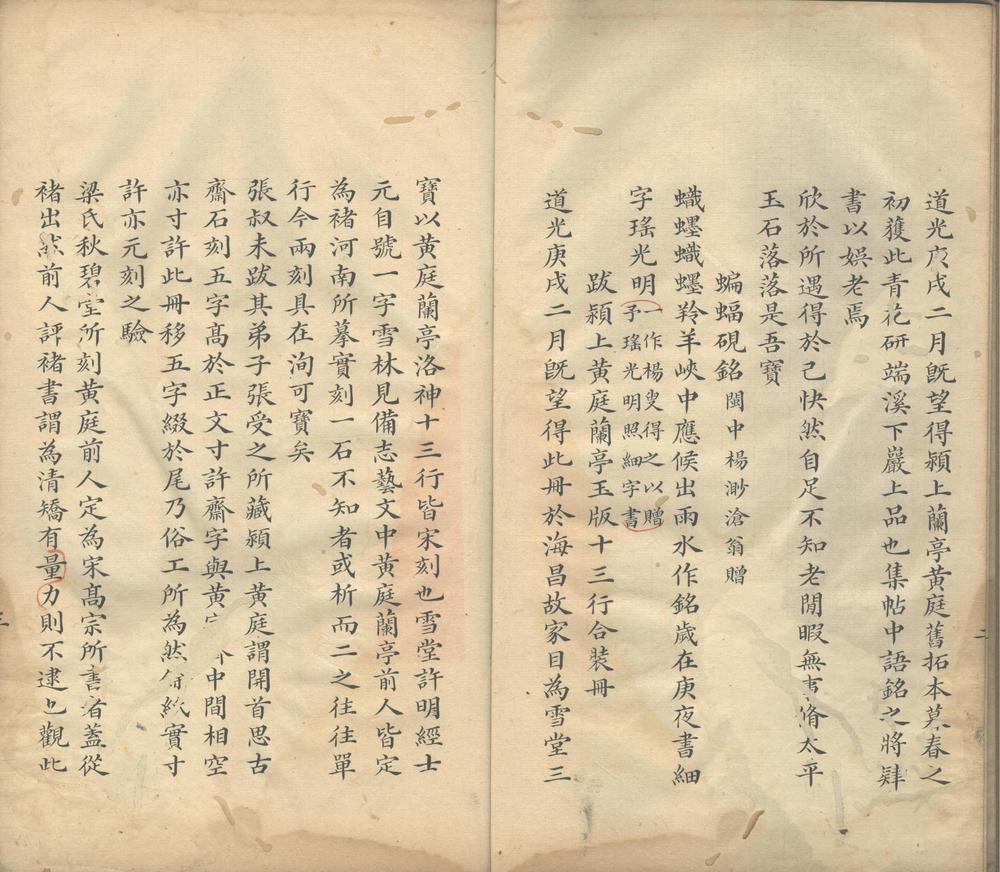 道光庚戌二月旣望得潁上蘭亭黃庭舊拓本莫春之
初獲此青花硏端溪下巖上品也集帖中語銘之將肄
書以娛老焉
欣於所遇得於己快然自足不知老閒暇無事脩太平
玉石落落是吾寶
蝙蝠硯銘閩中楊渺滄翁贈
蠘蟔蠘蟔羚羊峽中應候出雨水作銘歲在庚夜書細
字瑤光明一作楊叟得之以贈
予瑤光明照細字書
跋潁上黃庭蘭亭玉版十三行合裝冊
道光庚戌二月旣望得此冊於海昌故家目為雪堂三
寶以黃庭蘭亭洛神十三行皆宋刻也雪堂許明經士
元自號一字雪林見備志藝文中黃庭蘭亭前人皆定
為褚河南所摹實刻一石不知者或析而二之往往單
行今兩刻具在洵可寶矣
張叔未跋其弟子張受之所藏潁上黃庭謂開首思古
齋石刻五字高於正文寸許齋字與黃中間相空
亦寸許此冊移五字綴於尾乃俗工所為然實寸
許亦元刻之驗
梁氏秋碧堂所刻黃庭前人定為宋高宗所書者蓋從
褚出然前人評褚書謂為清矯有量力則不逮也觀此
三